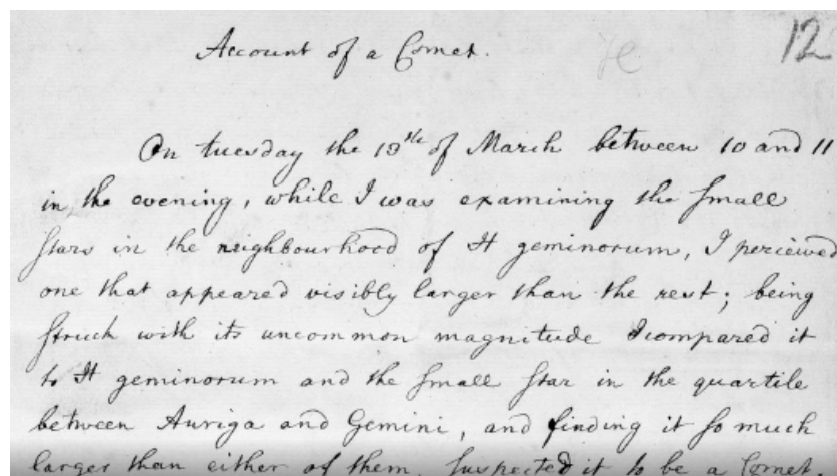 12
Account of a Comet.
On tuesday the 13th of March between 10 and 11
in the evening, while I was examining the small
stars in the neighbourhood of H geminorum, I perceived
one that appeared visibly larger than the rest; being
struck with its uncommon magnitude I compared it
to H geminorum and the small star in the quartile
between Auriga and Gemini, and finding it so much
larger than either of them, suspected it to be a Comet